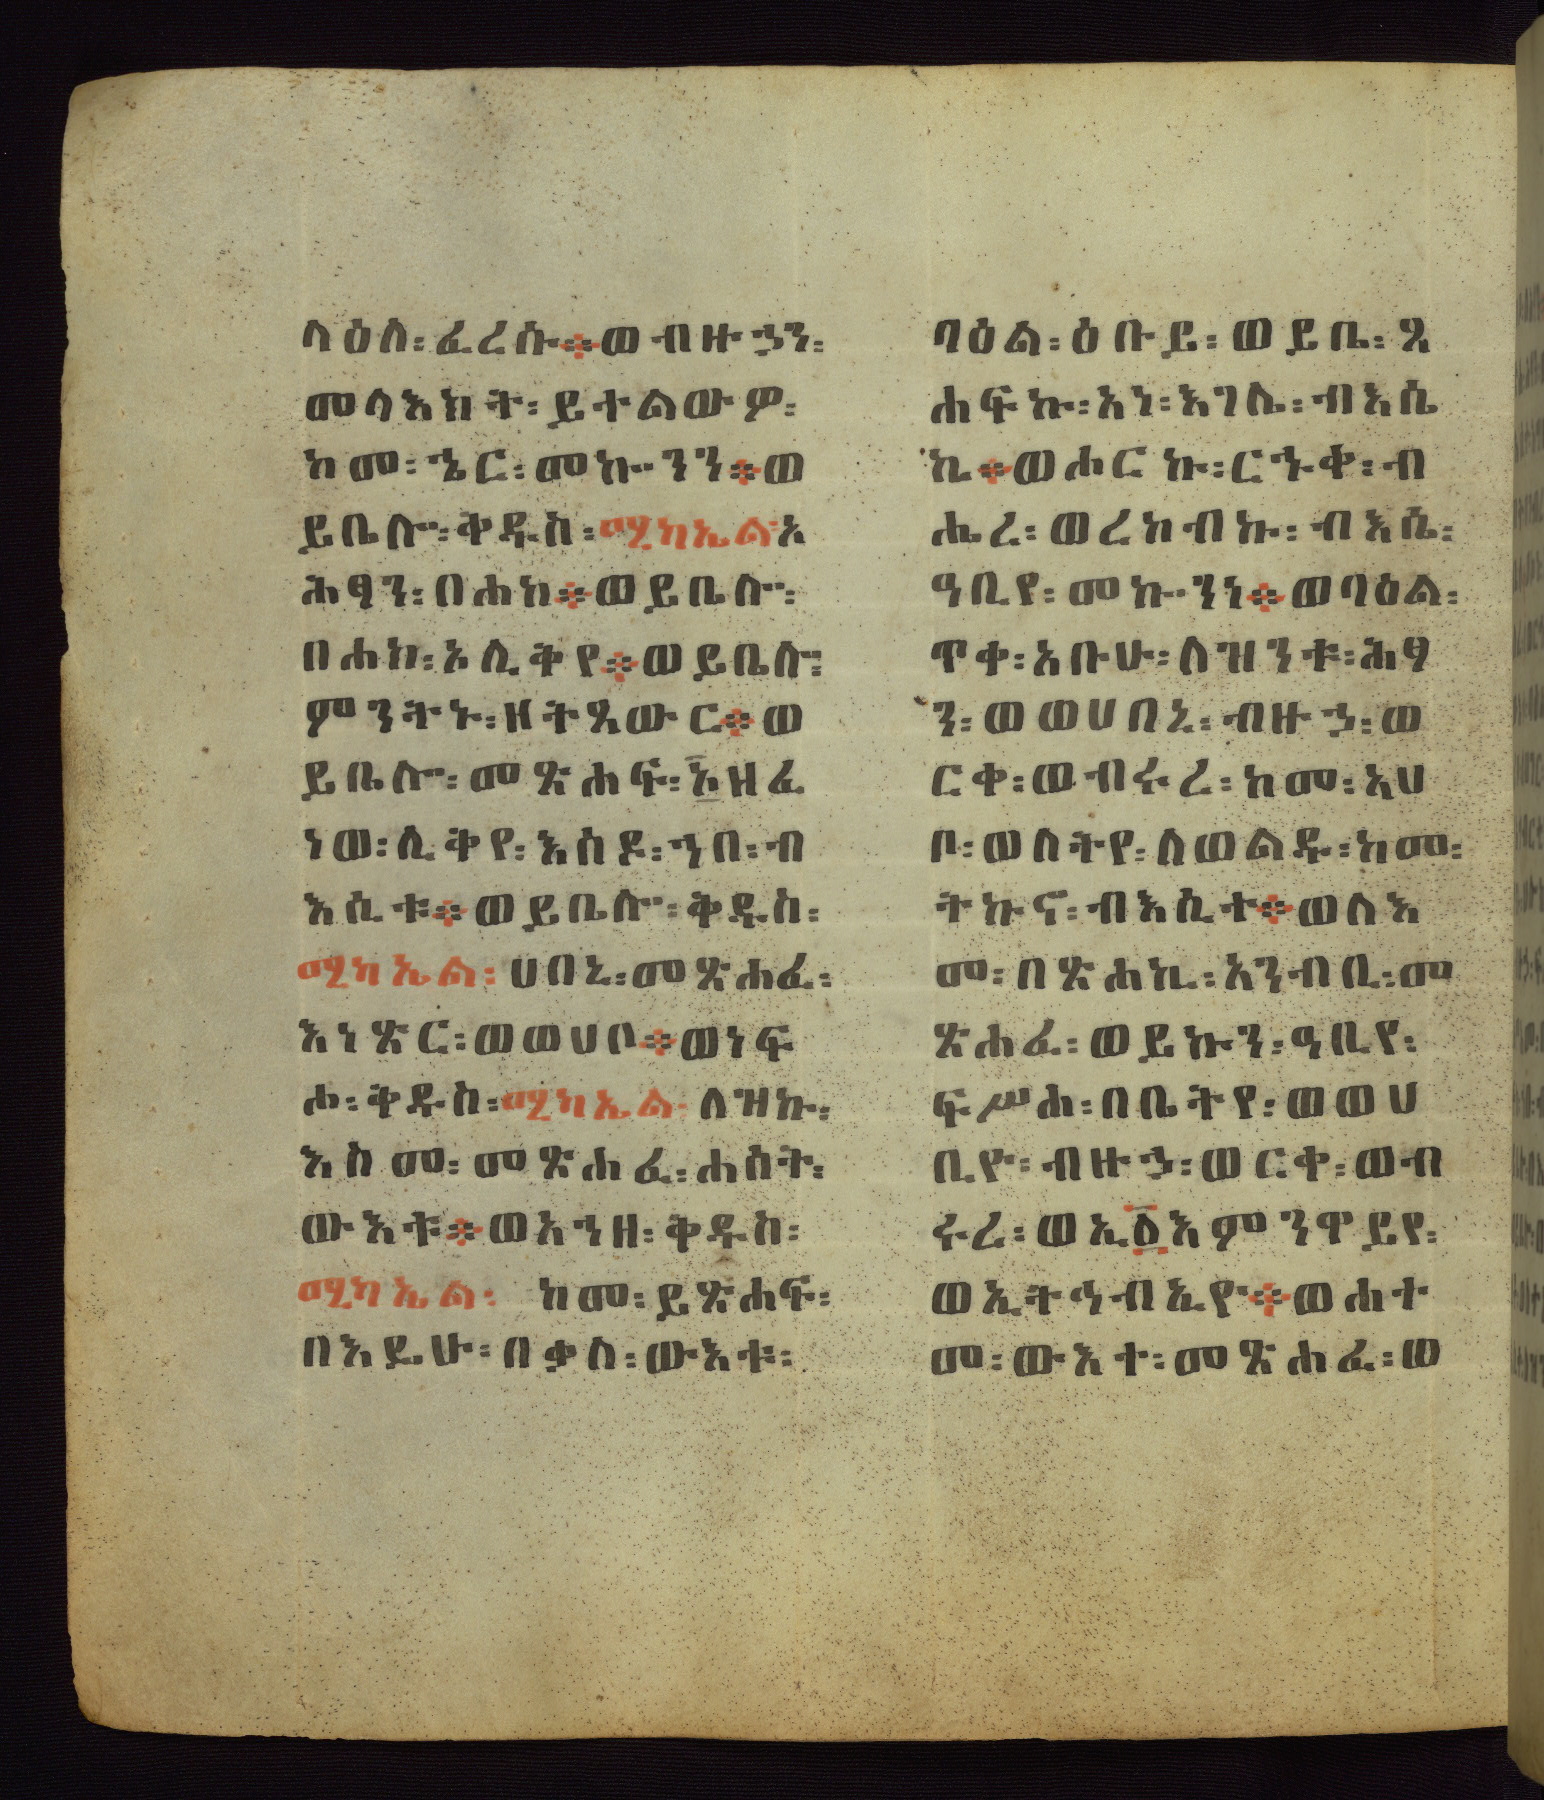 ላዕለ፡ ፈረሱ፨ ወብዙኃን፡
መላእክት፡ ይተልውዎ፡
ከመ፡ ኄር፡ መኰንን፨ ወ
ይቤሎ፡ ቅዱስ፡ ሚካኤል፡ አ
ሕፃን፡ በሐከ፨ ወይቤሎ፡
በሐከ፡ ኦሊቅየ፨ ወይቤሎ፡
ምንትኑ፡ ዘትጸውር፨ ወ
ይቤሎ፡ መጽሐፍ፡ እዘፈ
ነወ፡ ሊቅየ፡ እስዶ፡ ኀበ፡ ብ
እሲቱ፨ ወይቤሎ፡ ቅዱስ፡
ሚካኤል፡ ሀበኒ፡ መጽሐፈ፡
እነጽር፡ ወወሀቦ፨ ወነፍ
ሐ፡ ቅዱስ፡ ሚካኤል፡ ለዝኩ፡
እስመ፡ መጽሐፈ፡ ሐሰት፡
ውእቱ፨ ወአኀዘ፡ ቅዱስ፡
ሚካኤል፡ ከመ፡ ይጽሐፍ፡
በእዴሁ፡ በቃለ፡ ውእቱ፡
ባዕል፡ ዕቡይ፡ ወይቤ፡ ጸ
ሐፍኩ፡ አነ፡ እገሌ፡ ብእሲ
ኪ፨ ወሐርኩ፡ ርኁቀ፡ ብ
ሔረ፡ ወረከብኩ፡ ብእሴ፡
ዓቢየ፡ መኰንነ፨ ወባዕል፡
ጥቀ፡ አቡሁ፡ ለዝንቱ፡ ሕፃ
ን፡ ወወሀበኒ፡ ብዙኃ፡ ወ
ርቀ፡ ወብሩረ፡ ከመ፡ አሀ
ቦ፡ ወለትየ፡ ለወልዱ፡ ከመ፡
ትኩኖ፡ ብእሲተ፨ ወለእ
መ፡ በጽሐኪ፡ አንብቢ፡ መ
ጽሐፈ፡ ወይኩን፡ ዓቢየ፡
ፍሥሐ፡ በቤትየ፡ ወወሀ
ቢዮ፡ ብዙኃ፡ ወርቀ፡ ወብ
ሩረ፡ ወኢ፩እምንዋይየ፡
ወኢትኅብኢዮ፨ ወሐተ
መ፡ ውእተ፡ መጽሐፈ፡ ወ